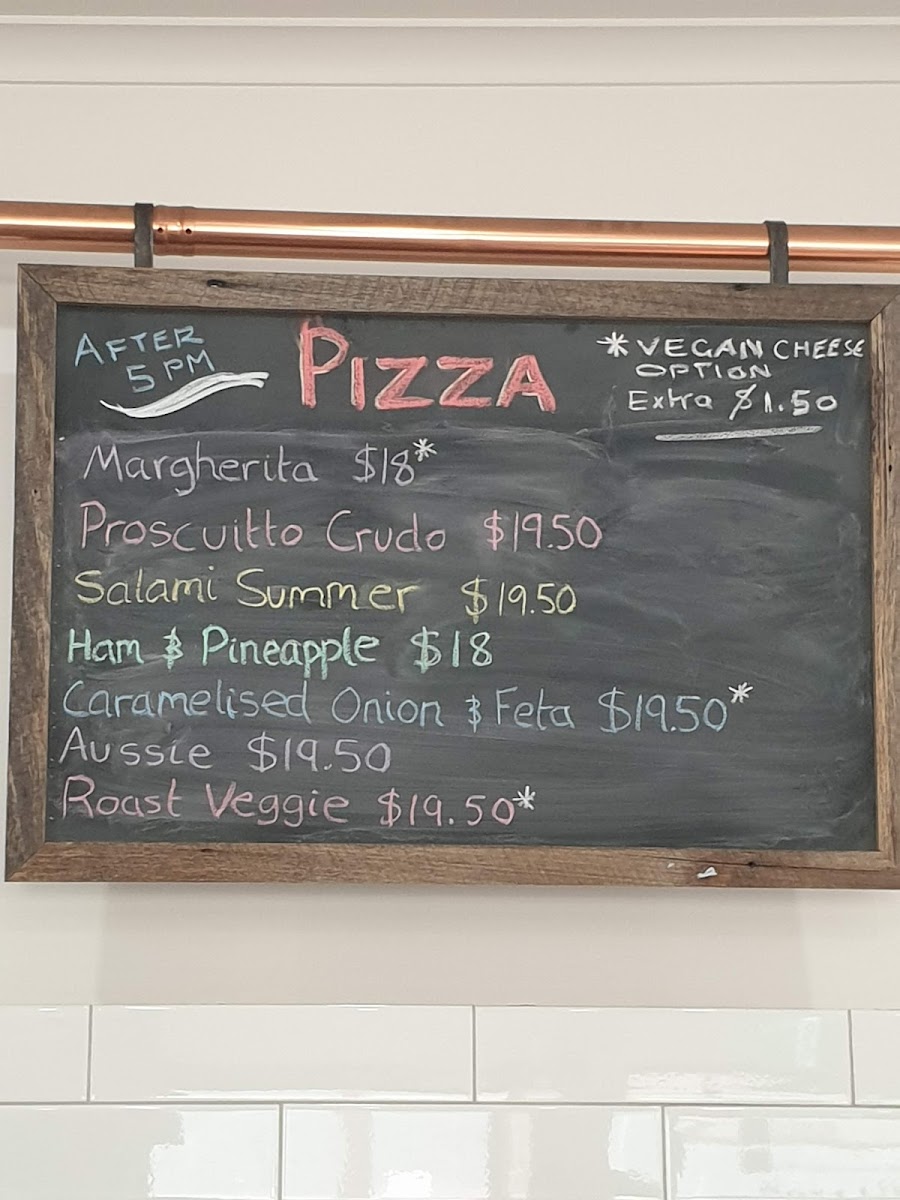 AFTER
5 PM
PIZZA
* VEGAN CHEESE
OPTION
Extra $1.50
Margherita $18*
Proscuitto Crudo $19.50
Salami Summer $19.50
Ham & Pineapple $18
Caramelised Onion & Feta $19.50*
Aussie $19.50
Roast Veggie $19.50*